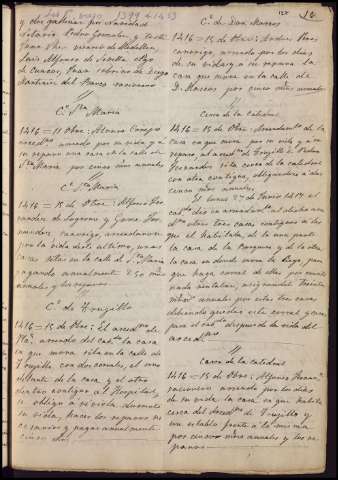 y dos gallinas por Navidad
Pedro Gonzalez y
Juan vecino de Medellin
Luis Alfonso de Sevilla, Rigo
de Cuacos, Juan sobrino de Diego
Martinez del Barco racionero
Cª Sta Maria
1416 = 11 Obre: Alonso Campo
arcediano arrendó por su vida y á
su reparo una casa de la calle de
Sta Maria por cinco mrs anuales
Cª Sta Maria
1416 = 15 de Obre: Alfonso Fer
nandez de Logroño y Gome Fer
nandez canonigo, arrendaron
por la vida deste ultimo, unas
casas sitas en la calle de Sta Maria
pagando anualmente 250 mrs
anuales y los reparos
Cª de Trujillo
1416 = 15 de Obre: El arcediano de
Plaª arrendó del cabdo la casa
en que mora sita en la calle de
Trujillo, con dos corrales, el uno
delante de la casa y el otro
detras contiguo al Hospital,
se obligan á su vida durante
su vida, hacer los reparos ne
cesarios y pagar anualmente
cinco
14
Cª de Don Marcos
1416 = 15 de Obre: Andres Perez
canonigo, arrendó por los dias
de su vida y a su reparo la
casa que mora en la calle de
D. Marcos por cinco mrs anuales
Cerca de la Catedral
1416 = 15 de Obre: Arrendamto de la
casa en que mora, por su vida y a su
reparo, al arcedno de Trujillo D. Pedro
Fernandez sita cerca de la catedral
con otra contigua, obligandose a dar
cinco mrs anuales.
El lunes 22 de Junio 1417 el
cabdo dió en arrendamto al dicho arce
dno otras tres casas contiguas a las
que el habitaba, de la una parte
la casa de la Parguera y de la otra
la casa en donde mora de Lugo, para
que haga corral de ellas por cuanto
nada rentaban, asignando Treinta
mrs anuales por estas tres casas
debiendo quedar este corral y casas
para el cabdo despues de la vida del
arcedno
Cerca de la Catedral
1416 = 15 de Obre: Alfonso Fernanz
racionero arrendó por los dias
de su vida la casa en que habita
cerca del arcedno de Trujillo y
un establo frente á la misma
por cinco mrs anuales y los re
paros